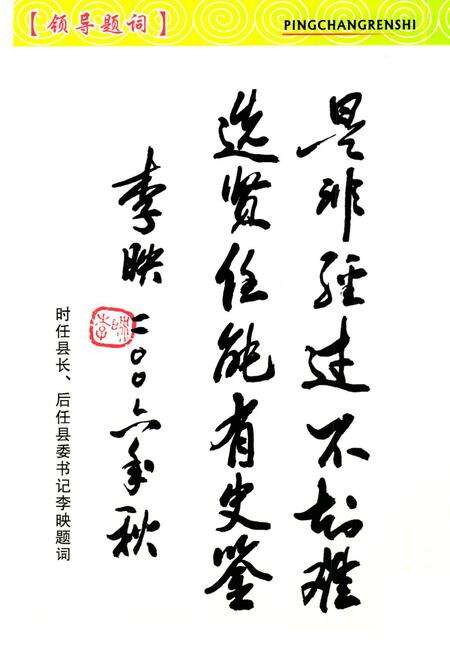 【领导题词】
PINGCHANGRENSHI
是非经过不知难
选贤任能有史鉴
李映 二〇〇六年秋
时任县长、后任县委书记李映题词